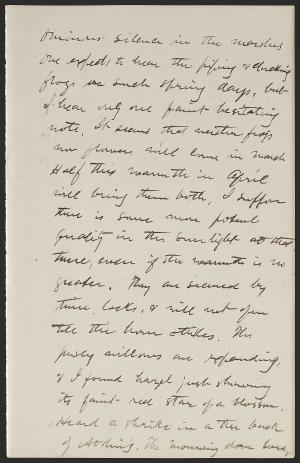 ominous silence in the marshes
one expects to hear the piping & clucking
frogs on such spring days, but
I hear only one faint hesitating
note. It seems that neither frogs
nor flowers will come in March
Half this warmth in April
will bring them both, I suppose
there is some more potent
quality in the sunlight at that
time, even if the warmth is no
greater. They are secured by
time locks, & will not open
till the hour strikes. The
pussy willows are expanding,
& I found hazel just showing
its faint red star of a blossom.
Heard a shrike in a tree back
of Atkins. The mourning dove here,